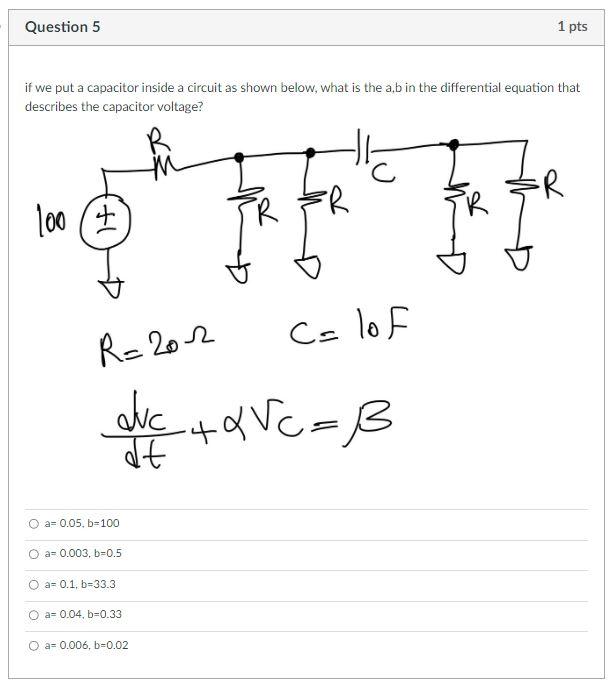 Question 5 1 pts
if we put a capacitor inside a circuit as shown below, what is the a,b in the differential equation that
describes the capacitor voltage?
R
C
100 + R R R R
R=20Ω C= 10F
dVc/dt + αVc = β
a= 0.05, b=100
a= 0.003, b=0.5
a= 0.1, b=33.3
a= 0.04, b=0.33
a= 0.006, b=0.02